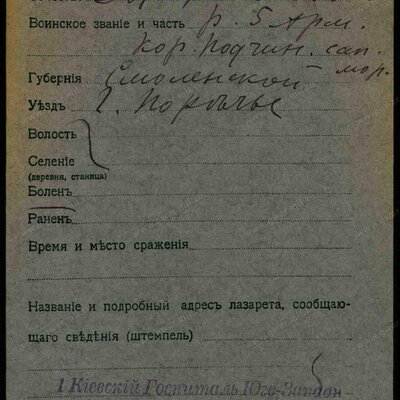 Воинское званіе и часть р. 5 Арм.
Кор. Подчин. сап.
мор.
Губернія Смоленской
Уѣздъ г. Порѣчье
Волость
Селеніе
(деревня, станица)
Боленъ
Раненъ
Время и мѣсто сраженія
Названіе и подробный адресъ лазарета, сообщаю-
щаго свѣдѣнія (штемпель)
1 Кіевскій Госпиталь Юго-Западн